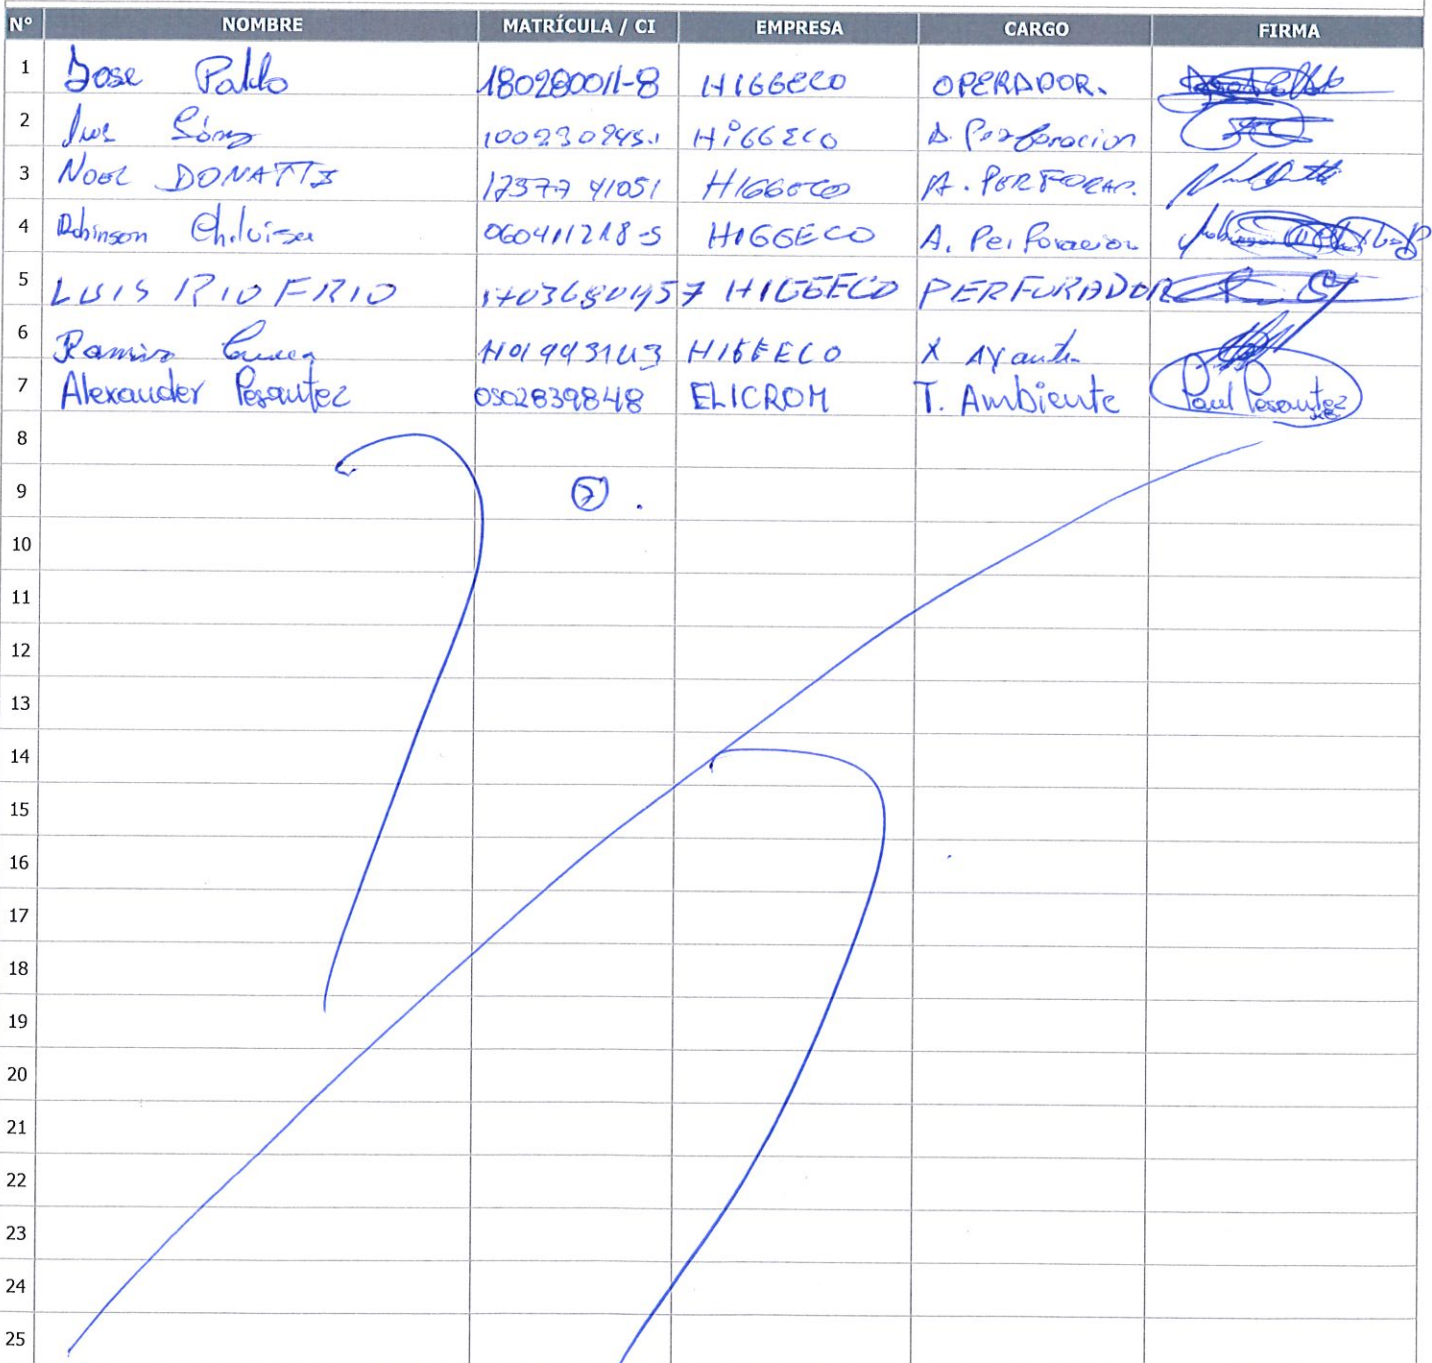 N° NOMBRE MATRÍCULA / CI EMPRESA CARGO FIRMA
1 Jose Pablo 180280011-8 HIGGECO OPERADOR.
2 HiGGECO A. Perforacion
3 NOEL DONATTI 1757741051 HIGGECO A. PERFORAC.
4 Robinson Chiluisa 060411218-5 HIGGECO A. Perforacion
5 LUIS RIOFRIO 1703680457 HIGGECO PERFORADOR
6 Ramiro HIGGECO X Ayante
7 Alexander Pesantez 0502839848 ELICROM T. Ambiente Paul Pesantez
8
9 7 .
10
11
12
13
14
15
16
17
18
19
20
21
22
23
24
25